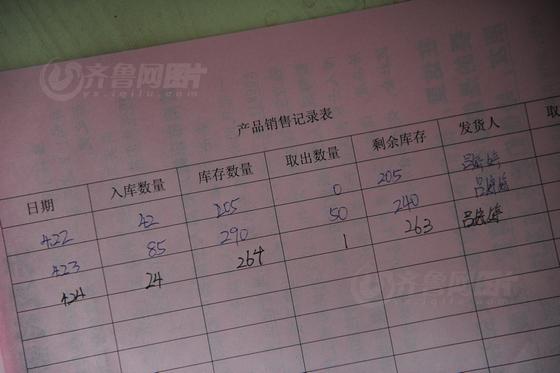 齐鲁网图片
ys.iqilu.com
产品销售记录表
日期 入库数量 库存数量 取出数量 剩余库存 发货人 取
4.22 42 205 0 205
4.23 85 290 50 240
4.24 24 264 1 263
齐鲁网图片